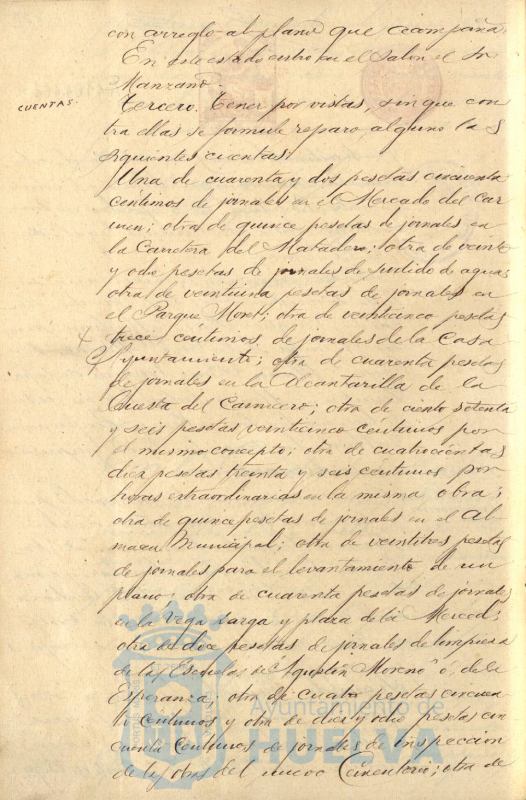 con arreglo al plano que acompaña.
En este estado entro en el Salon el Sr
Manzano.
CUENTAS.
Tercero. Tener por vistas, sin que con
tra ellas se formule reparo alguno las
siguientes cuentas:
Una de cuarenta y dos pesetas cincuenta
céntimos de jornales en el Mercado del Car
men; otra de quince pesetas de jornales en
la Carretera del Matadero; otra de veinte
y ocho pesetas de jornales de surtido de agua;
otra de veintiuna pesetas de jornales en
el Parque Moret; otra de veinticinco pesetas
trece céntimos, de jornales de la Casa
Ayuntamiento; otra de cuarenta pesetas
de jornales en la Alcantarilla de la
Cuesta del Carnicero; otra de ciento setenta
y seis pesetas veinticinco centimos por
el mismo concepto; otra de cuatrocientas
diez pesetas treinta y seis centimos por
horas extraordinarias en la misma obra;
otra de quince pesetas de jornales en el Al
macen Municipal; otra de veintitres pesetas
de jornales para el levantamiento de un
plano; otra de cuarenta pesetas de jornales
en la Vega Larga y plaza de la Merced;
otra de doce pesetas de jornales de limpieza
de las Escuelas de "Agustin Moreno" ó de la
Esperanza; otra de cuatro pesetas cincuen
ta centimos y otra de diez y ocho pesetas cin
cuenta centimos de jornales de inspeccion
de las obras del nuevo Cementerio; otra de
Ayuntamiento de
HUELVA